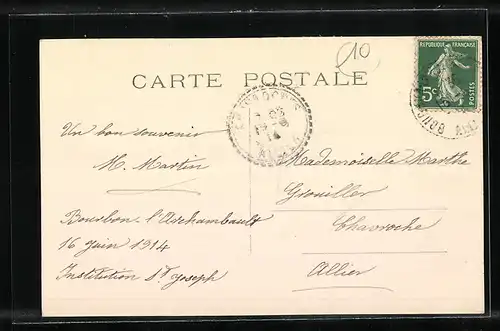 10
REPUBLIQUE FRANÇAISE
5c
POSTES
CARTE POSTALE
Un bon souvenir
M. Martin
Bourbon-l'Archambault
16 Juin 1914
Institution St Joseph
Mademoiselle Marthe
Grouiller
Chavroche
Allier